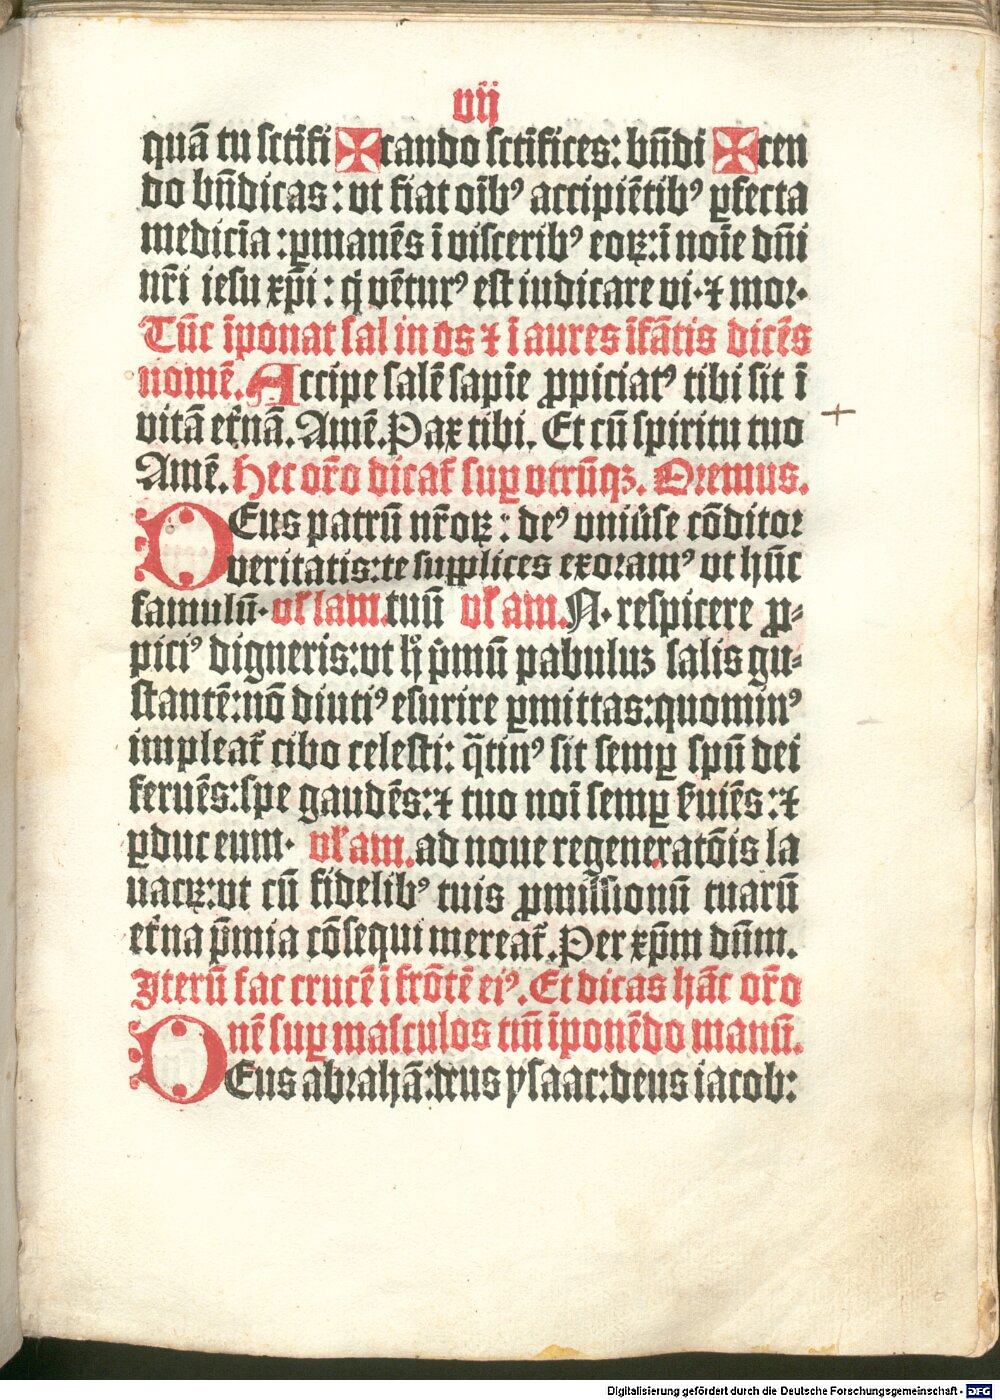 vij
quā tu sctīfi ✠ cando sctifices: bn̄di ✠ cen
do bn̄dicas: vt fiat oīb⁹ accipiētib⁹ ꝑfecta
medicīa: ꝑmanēs ī viscerib⁹ eoꝝ: ī noīe dn̄i
nr̄i iesu xp̄i: q̇ vētur⁹ est iudicare vi. ⁊ moꝛ.
Tūc īponat sal in os ⁊ ī aures īfātis dicēs
nomē. Accipe salē sapīe ꝓpiciat⁹ tibi sit ī
vitā et̄nā. Amē. Pax tibi. Et cū spiritu tuo
Amē. Hec or̄o dicat̄ suꝑ vtrūqꝫ. Oremus.
DEus patrū nr̄oꝝ: de⁹ vniūse cōditoꝛ
veritatis: te supplices exoꝛam⁹ vt hūc
famulū. vl̄ lam. tuū vl̄ am. N. respicere ꝓ⸗
pici⁹ digneris: vt hͦ pͥmū pabuluꝫ salis gu⸗
stantē: nō diuti⁹ esurire ꝑmittas: quomin⁹
impleat̄ cibo celesti: q̄tin⁹ sit semꝑ spū dei
feruēs: spe gaudēs: ⁊ tuo noī semꝑ s̄uiēs: ⁊
ꝑduc eum. vl̄ am. ad noue regeneratōis la
uacꝝ: vt cū fidelib⁹ tuis ꝓmissionū tuarū
et̄na p̄mia cōsequi mereat̄. Per xp̄m dn̄m.
Iterū fac crucē ī frōtē ei⁹. Et dicas hāc or̄o
nē suꝑ masculos tm̄ īponēdo manū.
DEus abꝛahā: deus ysaac: deus iacob:
Digitalisierung gefördert durch die Deutsche Forschungsgemeinschaft - DFG